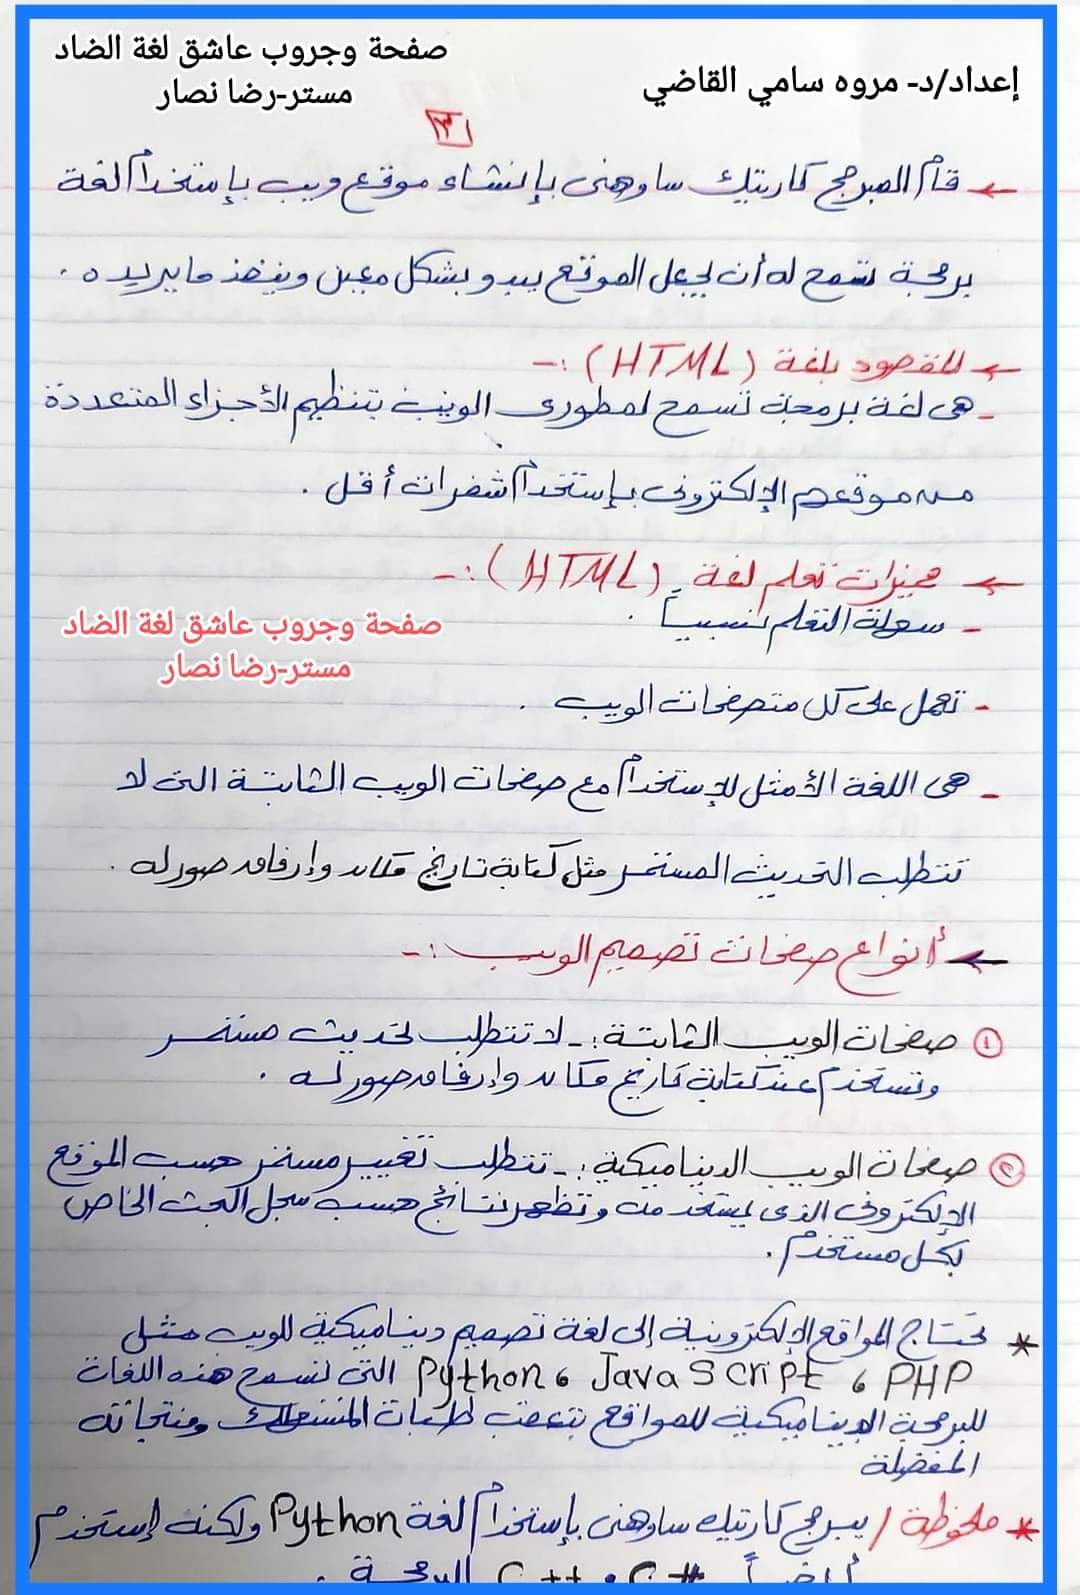 صفحة وجروب عاشق لغة الضاد
مستر-رضا نصار
إعداد/د- مروه سامي القاضي
٣
← قام المبرمج كارتيك ساوهنى بإنشاء موقع ويب بإستخدام لغة
برمجة تسمح له أن يجعل الموقع يبدو بشكل معين وينفذ ما يريده .
← المقصود بلغة (HTML) :-
- هى لغة برمجة تسمح لمطورى الويب بتنظيم الأجزاء المتعددة
من موقعهم الإلكترونى بإستخدام شفرات أقل .
← مميزات تعلم لغة (HTML) :-
- سهلة التعلم نسبياً .
صفحة وجروب عاشق لغة الضاد
مستر-رضا نصار
- تعمل على كل متصفحات الويب .
- هى اللغة الأمثل للإستخدام مع صفحات الويب الثابتة التى لا
تتطلب التحديث المستمر مثل كتابة تاريخ مكان وإرفاق صور له .
← أنواع صفحات تصميم الويب :-
① صفحات الويب الثابتة :- لا تتطلب تحديث مستمر
وتستخدم عند كتابة تاريخ مكان وإرفاق صور له .
② صفحات الويب الديناميكية :- تتطلب تغيير مستمر حسب الموقع
الإلكترونى الذى يستخدمه وتظهر نتائج حسب سجل البحث الخاص
بكل مستخدم .
* تحتاج المواقع الإلكترونية إلى لغة تصميم ديناميكية للويب مثل
PHP ، JavaScript ، Python التى تسمح هذه اللغات
للبرمجة الديناميكية للمواقع بتعقب طلبات المستهلك ومنتجاته
المفضلة
* ملحوظة / يبرمج كارتيك ساوهنى بإستخدام لغة Python ولكنه إستخدم
أيضاً C# ، C++ البرمجة .